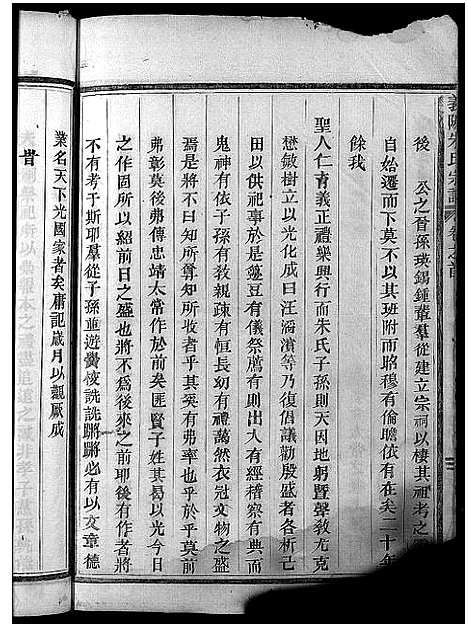 義陽朱氏宗譜 卷之首
後 公之晉孫瑛錫鍾輩羣從建立宗祠以棲其祖考之
自始遷而下莫不以其班附而昭穆有倫瞻依有在矣二十年
餘我
聖人仁育義正禮樂興行而朱氏子孫則天因地躬暨聲教尤克
懋敏樹立以光化成曰汪滃濱等乃復倡議勸殷盛者各析己
田以供祀事於是籩豆有儀祭薦有則出入有經稽察有典而
鬼神有依子孫有殺親疎有恒長幼有禮藹然衣冠文物之盛
焉是將不曰知所尊知所收者乎其矣有弗率也乎於乎莫前
弗彰莫後弗傳忠靖太常作於前矣匪賢子姓其曷以光今日
之作固所以紹前日之盛也將不爲後來之前耶後有作者將
不有考于斯耶羣從子孫並遊黌校詵詵蹡蹡必有以文章德
業名天下光國家者矣庸記歲月以觀厥成
昔